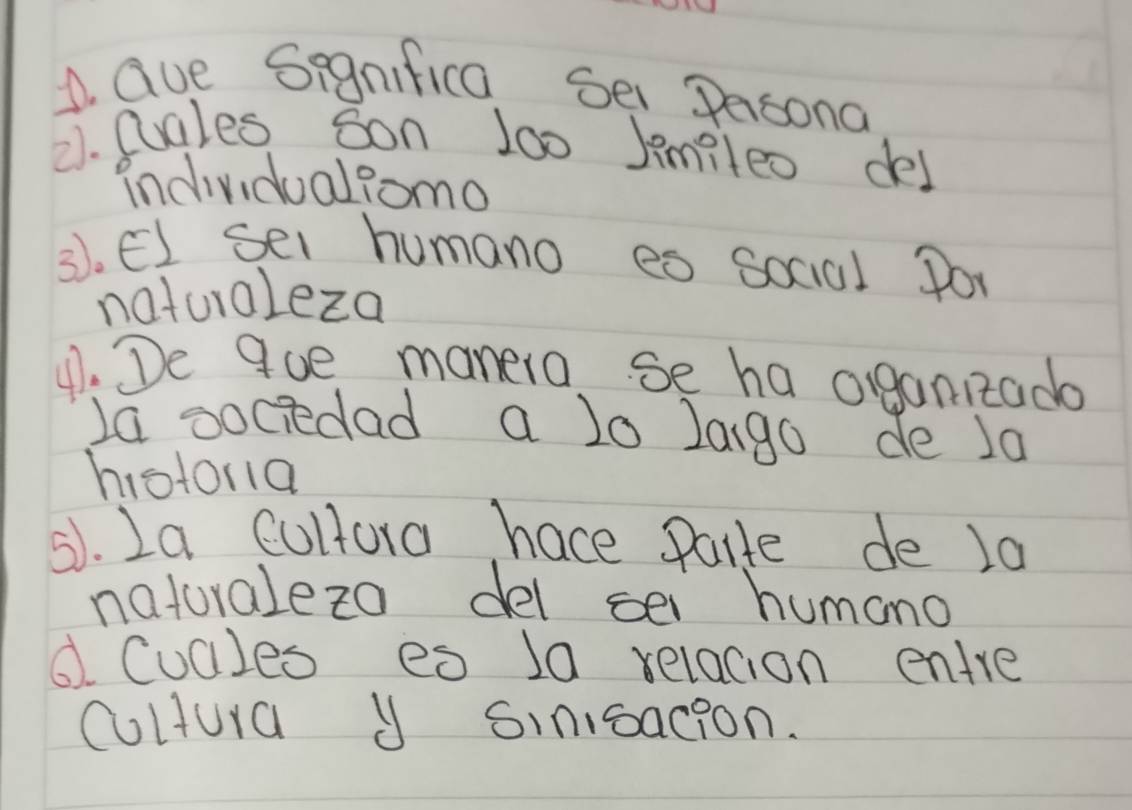 1). Que Significa Ser Persona
2). Cuales son los limites del
individualismo
3). El ser humano es social por
naturaleza
4). De que manera se ha organizado
la sociedad a lo largo de la
historia
5). La cultura hace parte de la
naturaleza del ser humano
6). Cuales es la relacion entre
Cultura y sinisacion.